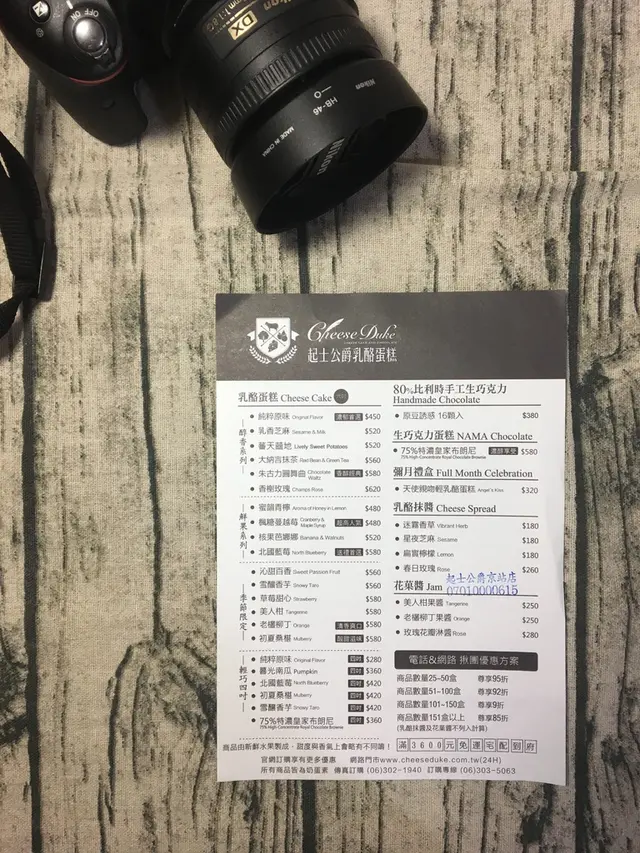 OFF ON
Nikon
DX
HB-46
Nikon
MADE IN CHINA
Nikon
Cheese Duke
起士公爵乳酪蛋糕
乳酪蛋糕 Cheese Cake
醇香系列
純粹原味 Original Flavor 濃郁首選 $450
乳香芝麻 Sesame & Milk $520
蕃天囍地 Lively Sweet Potatoes $520
大納言抹茶 Red Bean & Green Tea $560
朱古力圓舞曲 Chocolate Waltz 香醇經典 $580
香榭玫瑰 Champs Rose $620
鮮果系列
蜜韻青檸 Aroma of Honey in Lemon $480
楓糖蔓越莓 Cranberry & Maple Syrup 超高人氣 $480
核果芭娜娜 Banana & Walnuts $520
北國藍莓 North Blueberry 送禮首選 $580
季節限定
沁甜百香 Sweet Passion Fruit $560
雪釀香芋 Snowy Taro $560
草莓甜心 Strawberry $580
美人柑 Tangerine $580
老欉柳丁 Orange 清香爽口 $580
初夏桑椹 Mulberry 酸甜滋味 $580
輕巧四吋
純粹原味 Original Flavor 四吋 $280
醬光南瓜 Pumpkin 四吋 $360
北國藍莓 North Blueberry 四吋 $420
初夏桑椹 Mulberry 四吋 $420
雪釀香芋 Snowy Taro 四吋 $420
75%特濃皇家布朗尼 四吋 $360
75% High-Concentrate Royal Chocolate Brownie
80%比利時手工生巧克力
Handmade Chocolate
原豆誘惑 16顆入 $380
生巧克力蛋糕 NAMA Chocolate
75%特濃皇家布朗尼 濃醇享受 $580
75% High-Concentrate Royal Chocolate Brownie
彌月禮盒 Full Month Celebration
天使親吻輕乳酪蛋糕 Angel's Kiss $320
乳酪抹醬 Cheese Spread
迷霧香草 Vibrant Herb $180
星夜芝麻 Sesame $180
扁實檸檬 Lemon $180
春日玫瑰 Rose $260
起士公爵京站店
07010000615
花菓醬 Jam
美人柑果醬 Tangerine $250
老欉柳丁果醬 Orange $250
玫瑰花瓣淋醬 Rose $280
電話&網路 揪團優惠方案
商品數量25~50盒 尊享95折
商品數量51~100盒 尊享92折
商品數量101~150盒 尊享9折
商品數量151盒以上 尊享85折
(乳酪抹醬及花菓醬不列入計算)
商品由新鮮水果製成，甜度與香氣上會略有不同唷！
滿3600元免運宅配到府
官網訂購享有更多優惠 網路門市www.cheeseduke.com.tw(24H)
所有商品皆為奶蛋素 傳真訂購 (06)302-1940 訂購專線 (06)303-5063